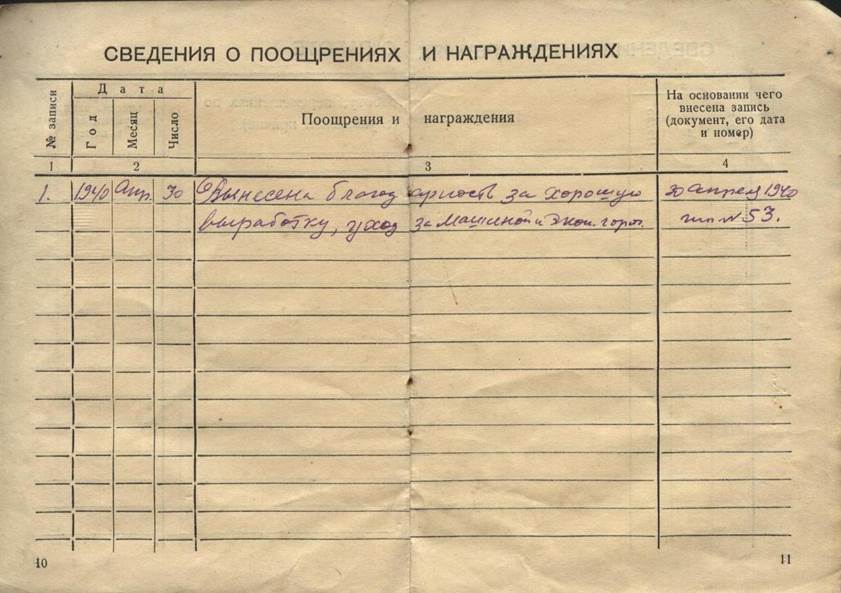 СВЕДЕНИЯ О ПООЩРЕНИЯХ И НАГРАЖДЕНИЯХ
№ записи
Дата
Год
Месяц
Число
Поощрения и награждения
На основании чего
внесена запись
(документ, его дата
и номер)
1 2 3 4
1. 1940 Апр. 30 Вынесена благодарность за хорошую 30 апреля 1940
выработку, уход за машиной и экон. горюч. № 53.
10 11